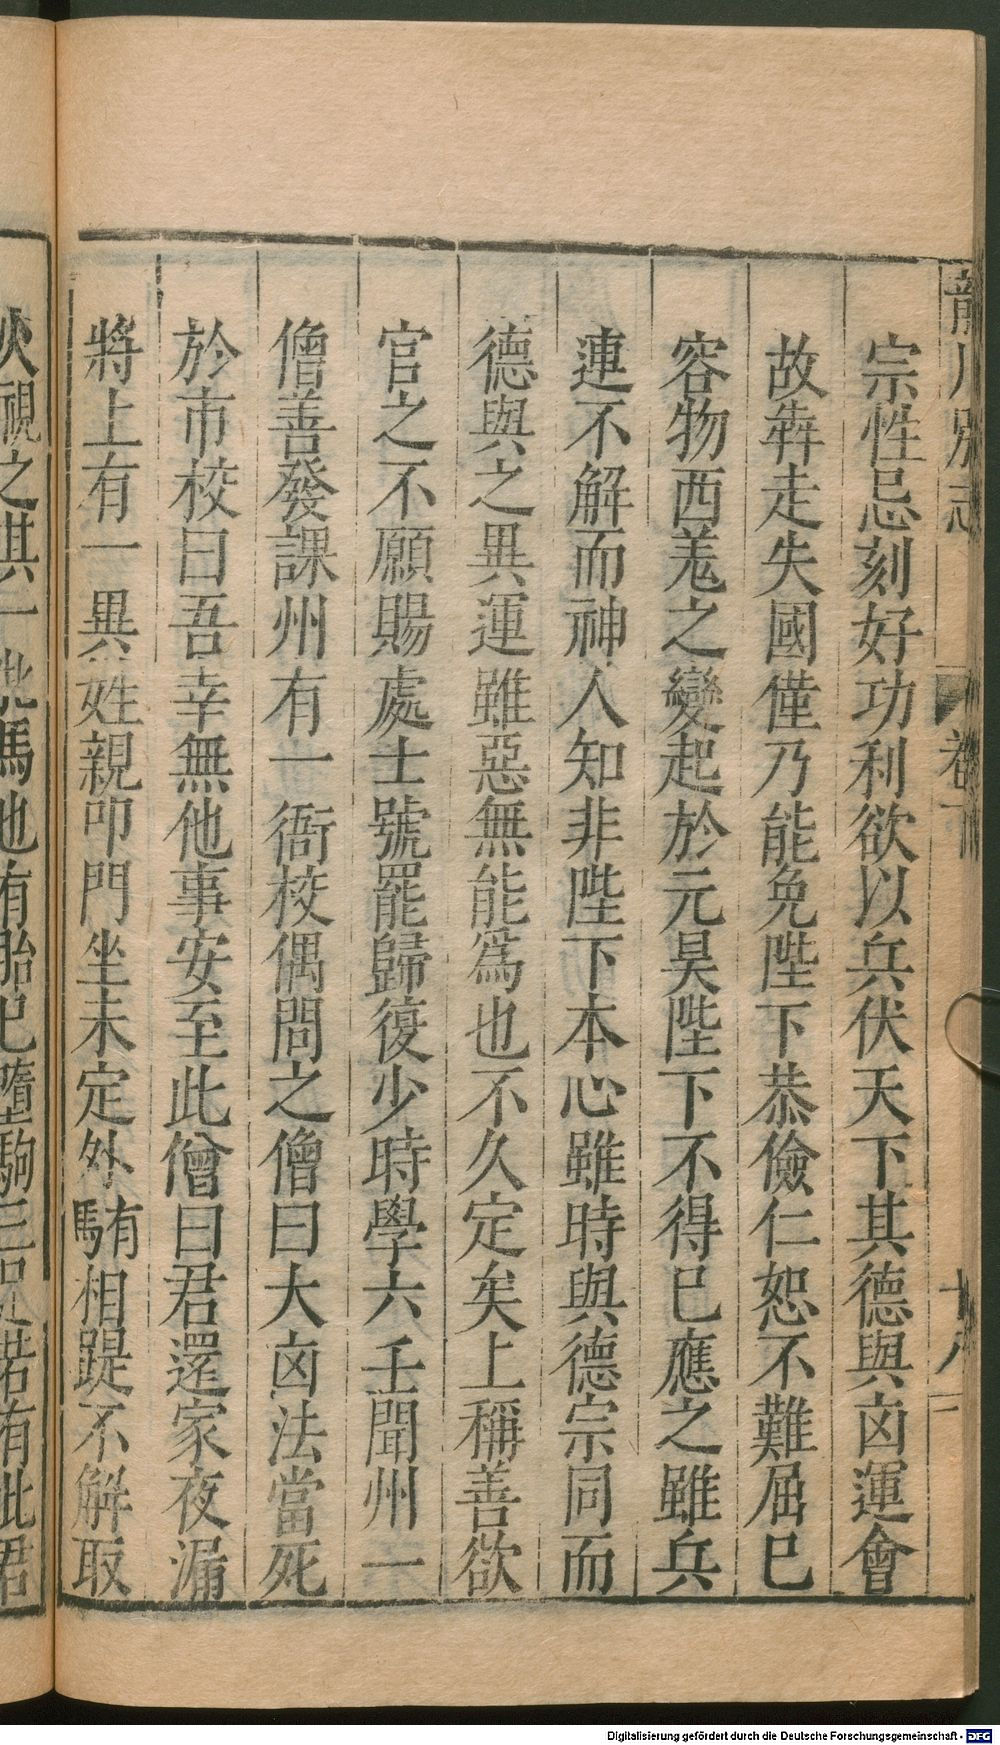 龍川別志 卷下 十八
宗性忌刻好功利欲以兵伏天下其德與凶運會
故犇走失國僅乃能免陛下恭儉仁恕不難屈已
容物西羗之變起於元昊陛下不得已應之雖兵
連不解而神人知非陛下本心雖時與德宗同而
德與之異運雖惡無能爲也不久定矣上稱善欲
官之不願賜處士號罷歸復少時學六壬聞州一
僧善發課州有一衙校偶問之僧曰大凶法當死
於市校曰吾幸無他事安至此僧曰君還家夜漏
將上有一異姓親叩門坐未定外有騧相踶不解取
火視之其一牝馬也有胎已墮駒三足若有此君
Digitalisierung gefördert durch die Deutsche Forschungsgemeinschaft - DFG